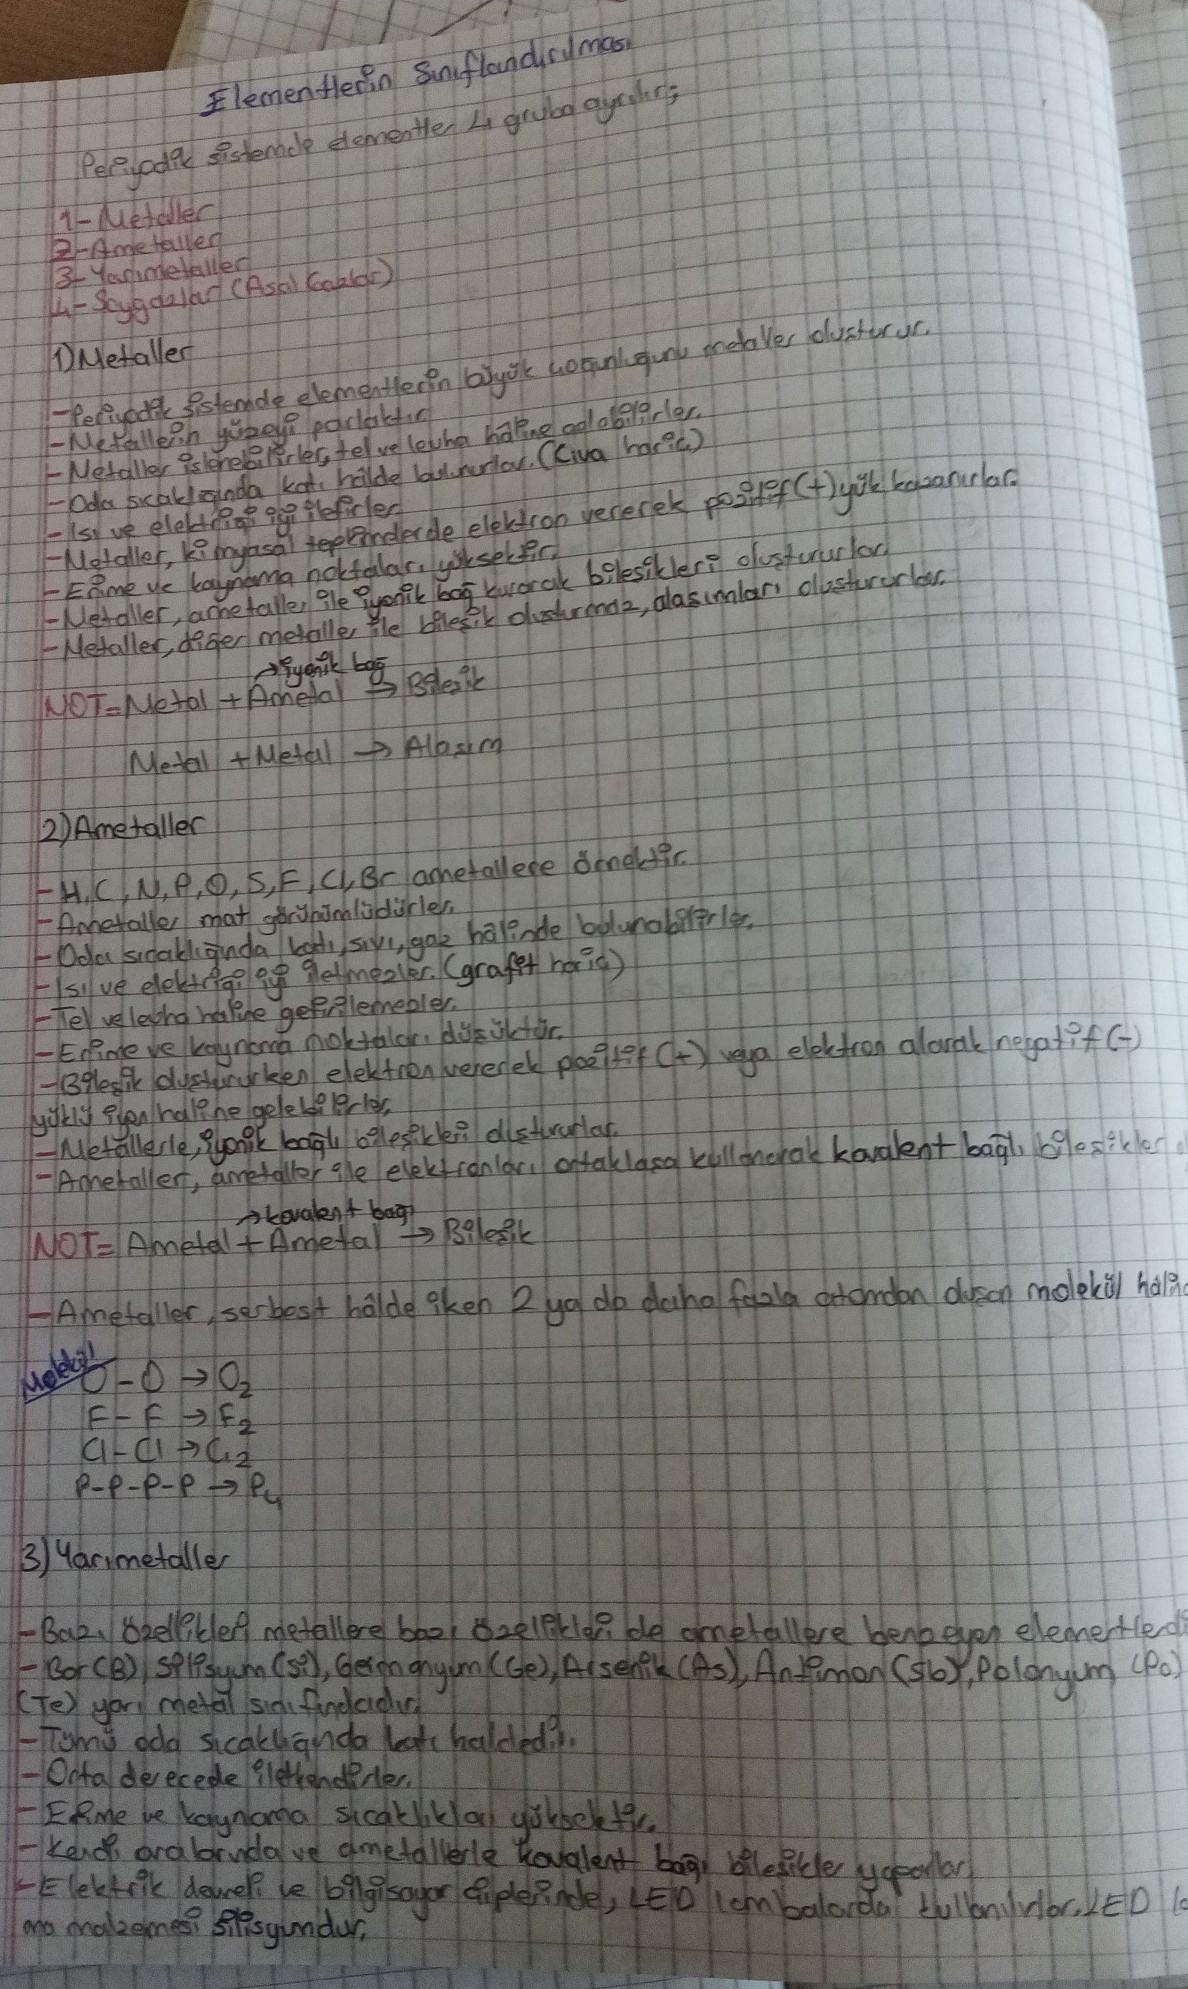 Elementlerin Sınıflandırılması
Periyodik sistemde elementler 4 gruba ayrılır;
1- Metaller
2- Ametaller
3- Yarımetaller
4- Soygazlar (Asal Gazlar)
1) Metaller
- Periyodik sistemde elementlerin büyük çoğunluğunu metaller oluşturur.
- Metallerin yüzeyi parlaktır.
- Metaller işlenebilirler, tel ve levha hâline gelebilirler.
- Oda sıcaklığında katı hâlde bulunurlar. (Civa hariç)
- Isı ve elektriği iyi iletirler.
- Metaller, kimyasal tepkimelerde elektron vererek pozitif (+) yük kazanırlar.
- Erime ve kaynama noktaları yüksektir.
- Metaller, ametaller ile iyonik bağ kurarak bileşikleri oluştururlar.
- Metaller, diğer metaller ile bileşik oluşturmaz, alaşımları oluştururlar.
→ iyonik bağ
NOT= Metal + Ametal → Bileşik
Metal + Metal → Alaşım
2) Ametaller
- H, C, N, P, O, S, F, Cl, Br ametallere örnektir.
- Ametaller mat görünümlüdürler.
- Oda sıcaklığında katı, sıvı, gaz hâlinde bulunabilirler.
- Isı ve elektriği iyi iletmezler. (grafit hariç)
- Tel ve levha haline getirilemezler.
- Erime ve kaynama noktaları düşüktür.
- Bileşik oluştururken elektron vererek pozitif (+) veya elektron alarak negatif (-)
yüklü iyon haline gelebilirler.
- Metallerle, iyonik bağlı bileşikleri oluştururlar.
- Ametaller, ametaller ile elektronları ortaklaşa kullanarak kovalent bağlı bileşikler
→ kovalent bağ
NOT= Ametal + Ametal → Bileşik
- Ametaller, serbest hâlde iken 2 ya da daha fazla atomdan oluşan molekül
Molekül
O-O → O₂
F-F → F₂
Cl-Cl → Cl₂
P-P-P-P → P₄
3) Yarımetaller
- Bazı özellikleri metallere bazı özellikleri de ametallere benzeyen
- Bor (B), Silisyum (Si), Germanyum (Ge), Arsenik (As), Antimon (Sb), Polonyum (Po)
(Te) yarı metal sınıfındadır.
- Tümü oda sıcaklığında katı haldedir.
- Orta derecede iletkendirler.
- Erime ve kaynama sıcaklıkları yüksektir.
- Kendi aralarında ve ametallerle kovalent bağı bileşikler yaparlar.
- Elektrik devreleri ve bilgisayar çiplerinde, LED lambalarda kullanılırlar. LED
ana malzemesi silisyumdur.